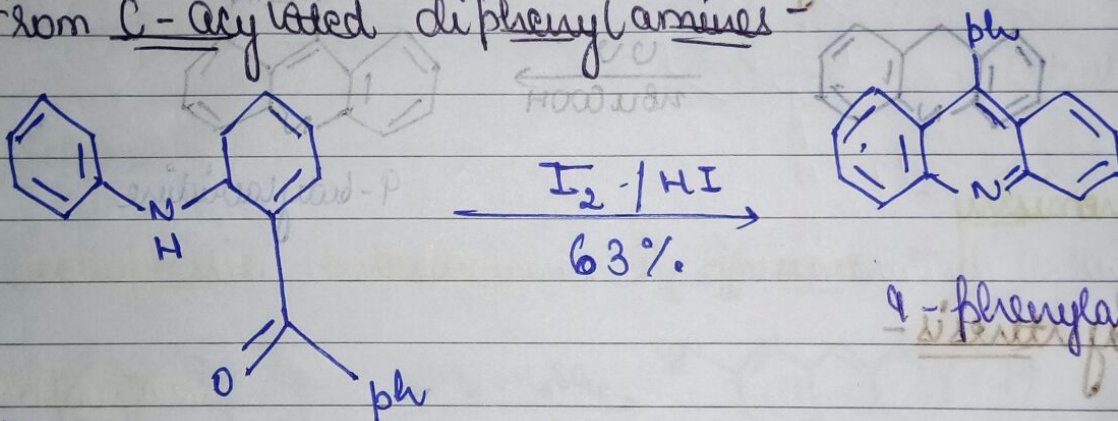 rom C-acylated diphenylamines-
ph
I2 / HI
63%.
N
H
N
O
ph
9-phenyla